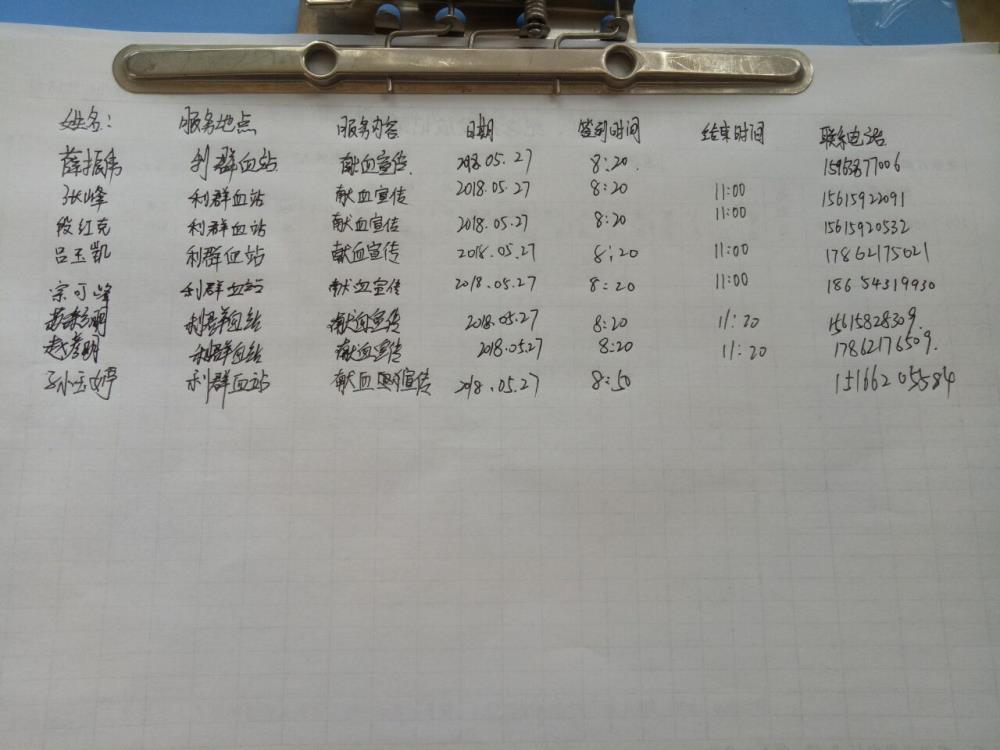 姓名: 服务地点 服务内容 日期 签到时间 结束时间 联系电话
薛振 利群血站 献血宣传. 2018.05.27 8:20.
张峰 利群血站 献血宣传 2018.05.27 8:20 11:00 15615922091
段红克 利群血站 献血宣传 2018.05.27 8:20 11:00 15615920532
吕玉凯 利群血站 献血宣传 2018.05.27 8:20 11:00 17862175021
宗可峰 利群血站 献血宣传 2018.05.27 8:20 11:00 18654319930
利群血站 献血宣传 2018.05.27 8:20 11:20 15615828309.
赵彦明 利群血站 献血宣传 2018.05.27 8:20 11:20 17862176509.
孙玉婷 利群血站 献血 宣传 2018.05.27 8:50 15166205584